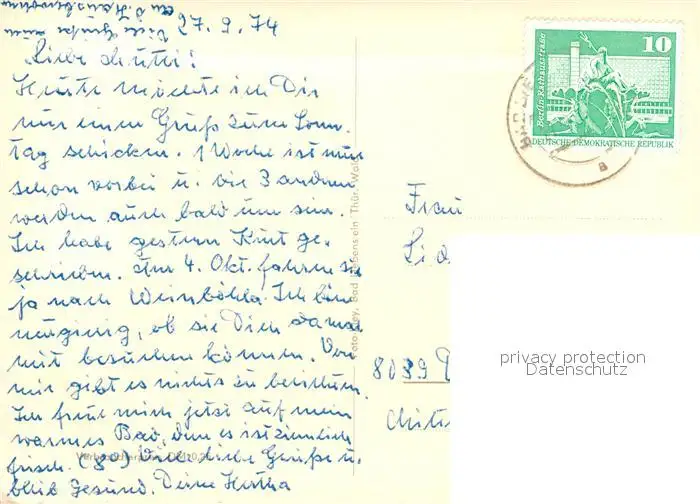 27. 9. 74
Liebe Mutti!
Heute möchte ich Dir
nur einen Gruß zum Sonn-
tag schicken. 1 Woche ist nun
schon vorbei u. die 3 andern
werden auch bald um sein.
Ich habe gestern Kurt ge-
schrieben. Am 4. Okt. fahren sie
ja nach Weinböhla. Ich bin
neugierig, ob sie Dich damal
mit besuchen können. Von
mir gibt es nichts zu berichten.
Ich freue mich jetzt auf mein
warmes Bad, denn es ist ziemlich
frisch. (8°) Viele liebe Grüße u.
bleib gesund. Deine Hertha
Viele Grüße
an
Bad Liebenstein Thür. Wald
10
Berlin-Rathausstraße
DEUTSCHE DEMOKRATISCHE REPUBLIK
Frau
8039
privacy protection
Datenschutz